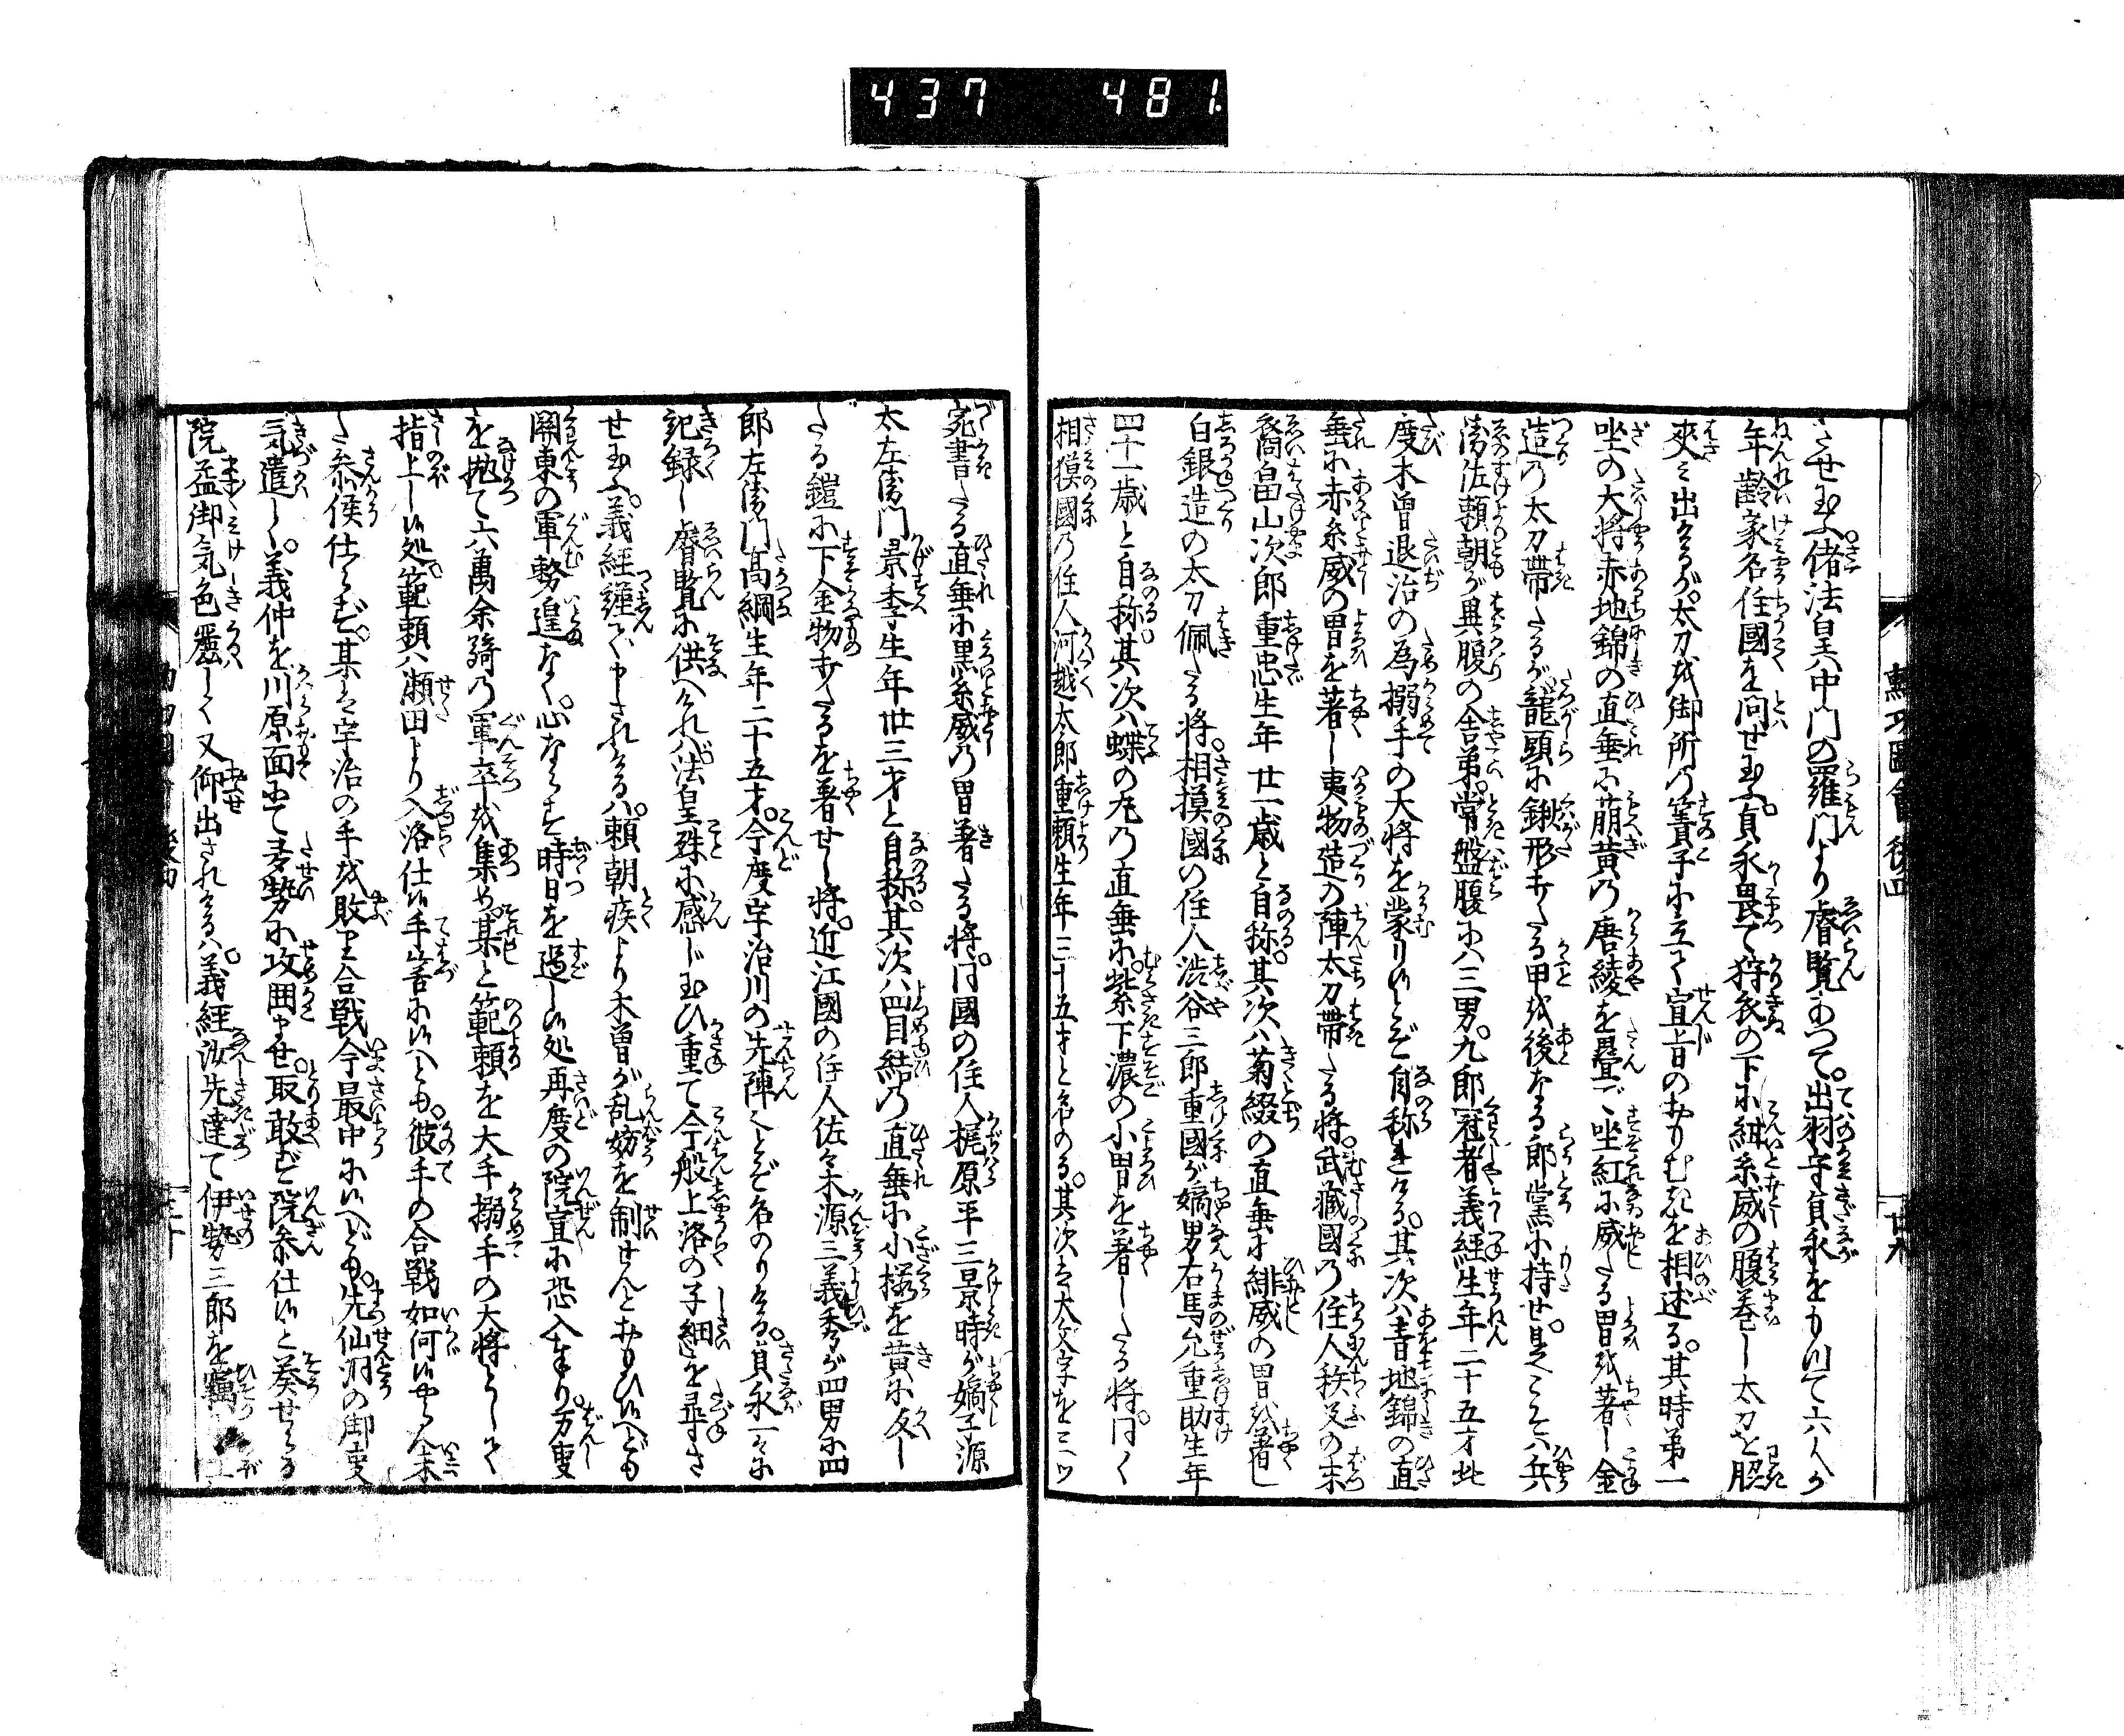 437 481
勲功圖會後四 廿九
させ玉ふ。偖法皇ハ中門の羅門より睿覧あつて。出羽守貞永をもつて六人が
年齢家名住國を問せ玉ふ。貞永畏て狩衣の下に紺糸威の腹巻し太刀を脇
夾ミ出けるが。太刀を御所の簀子に立て宣旨のおもむきを相述る。其時第一
坐の大将赤地錦の直垂に萠黄の唐綾を畳で坐紅に威したる冑を著し金
造の太刀帯たるが。龍頭に鍬形打たる甲を後なる郎黨に持せ。是こそハ兵
衛佐頼朝が異腹の舎弟。常盤腹にハ三男。九郎冠者義經生年二十五才此
度木曽退治の為搦手の大将を蒙り候とぞ自称ける。其次ハ青地錦の直
垂に赤糸威の冑を著し夷物造の陣太刀帯たる将。武藏國の住人秩父の末
裔畠山次郎重忠生年廿一歳と自称。其次ハ菊綴の直垂に緋威の冑を著し
白銀造の太刀佩たる将。相摸國の住人渋谷三郎重國が嫡男右馬允重助生年
四十一歳と自称。其次ハ蝶の丸の直垂に。紫下濃の小冑を著したる将。同く
相摸國の住人河越太郎重頼生年三十五才と名のる。其次は大文字を三ツ
宛書たる直垂に黒糸威の冑著たる将。同國の住人梶原平三景時が嫡子源
太左衛門景季生年廿三才と自称。其次ハ四目結の直垂に小桜を黄に反し
たる鎧に下金物打たるを著せし将。近江國の住人佐々木源三義秀が四男四
郎左衛門高綱生年二十五才。今度宇治川の先陣とぞ名のりける。貞永一々に
記録し睿覧に供へけれバ法皇殊に感じ玉ひ重て今般上洛の子細を尋さ
せ玉ふ。義經謹で申されけるハ。頼朝疾より木曽が乱妨を制せんとおもひ候へども
關東の軍勢遑なく。心ならず時日を過し候処再度の院宣に恐入奉り。万叓
を抛て六萬余騎の軍卒を集め。某と範頼を大手搦手の大将として
指上し候処。範頼ハ瀬田より入洛仕候手筈に候へとも。彼手の合戦如何候やらん未
た参候仕らず。某は宇治の手を敗り合戦今最中に候へども。先仙洞の御叓
気遣しく。義仲を川原面にて多勢に攻囲ませ。取敢ず院参仕候と奏せらる
院盃御気色麗しく又仰出されけるハ。義經汝先達て伊勢三郎を竊